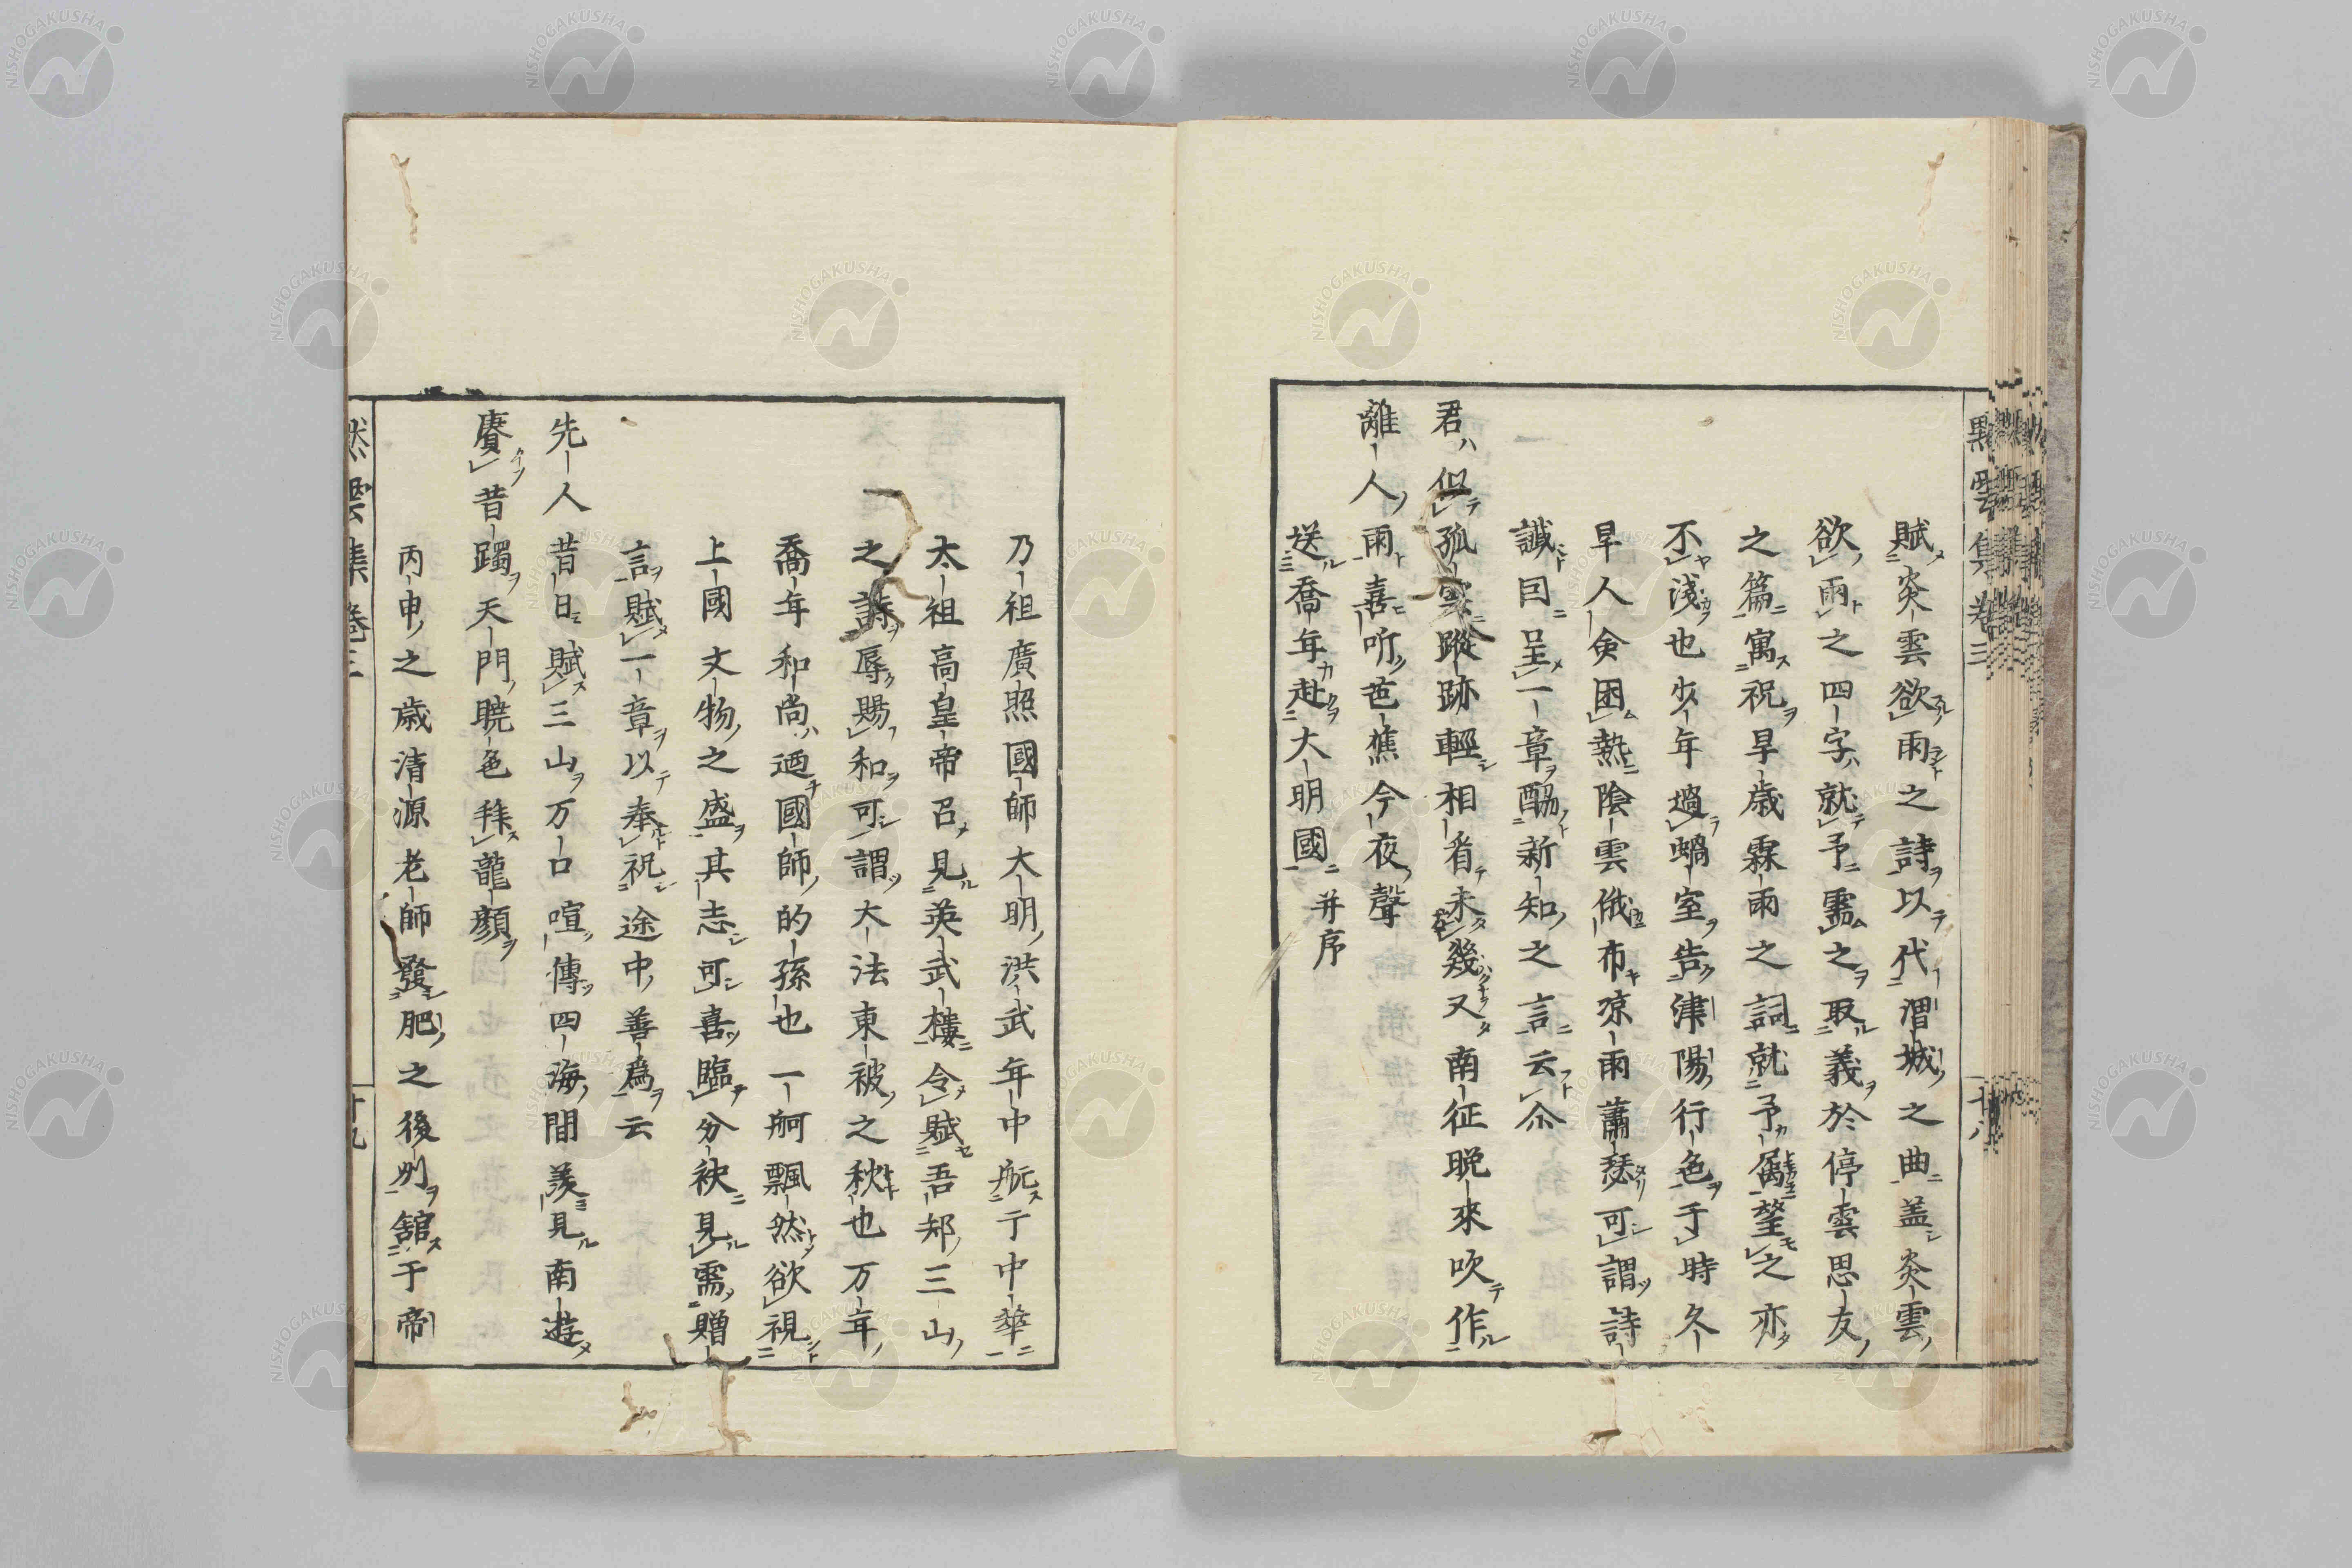 賦炎雲欲雨之詩以代渭城之曲盖炎雲
欲雨之四字就予需之取義於停雲思友
之篇寓祝旱歳霖雨之詞就予属望之亦
不淺也少年過蝸室告津陽行色于時久
旱人僉困熱陰雲俄布凉雨蕭瑟可謂詩
讖因呈一章酬新知之言云尒
君似孤雲蹤跡輕相看未幾又南征晩來吹作
離人雨喜听芭蕉今夜聲
送喬年赴大明國并序
乃祖廣照國師大明洪武年中航于中華
太祖高皇帝召見英武樓令賦吾邦三山
之詩辱賜和可謂大法東被之秋也万年
喬年和尚廼國師的孫也一舸飄然欲視
上國文物之盛其志可喜臨分袂見需贈
言賦一章以奉祝途中善爲云
先人昔日賦三山万口喧傳四海間羨見南遊
賡昔躅天門曉色拜龍顔
丙申之歳清源老師發肥之後州舘于帝
默雲集卷三
十八
十九